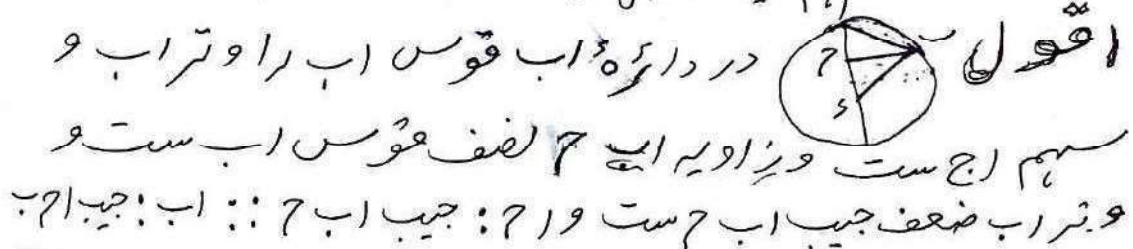 اقول در دائرۂ اب قوس اب را وتر اب و
سہم اج ست وزاویہ اب ح نصف قوس اب ست و
وتر اب ضعف جیب اب ح ست و اح : جیب اب ح :: اب : جیب اح ب
ب
ح
ء